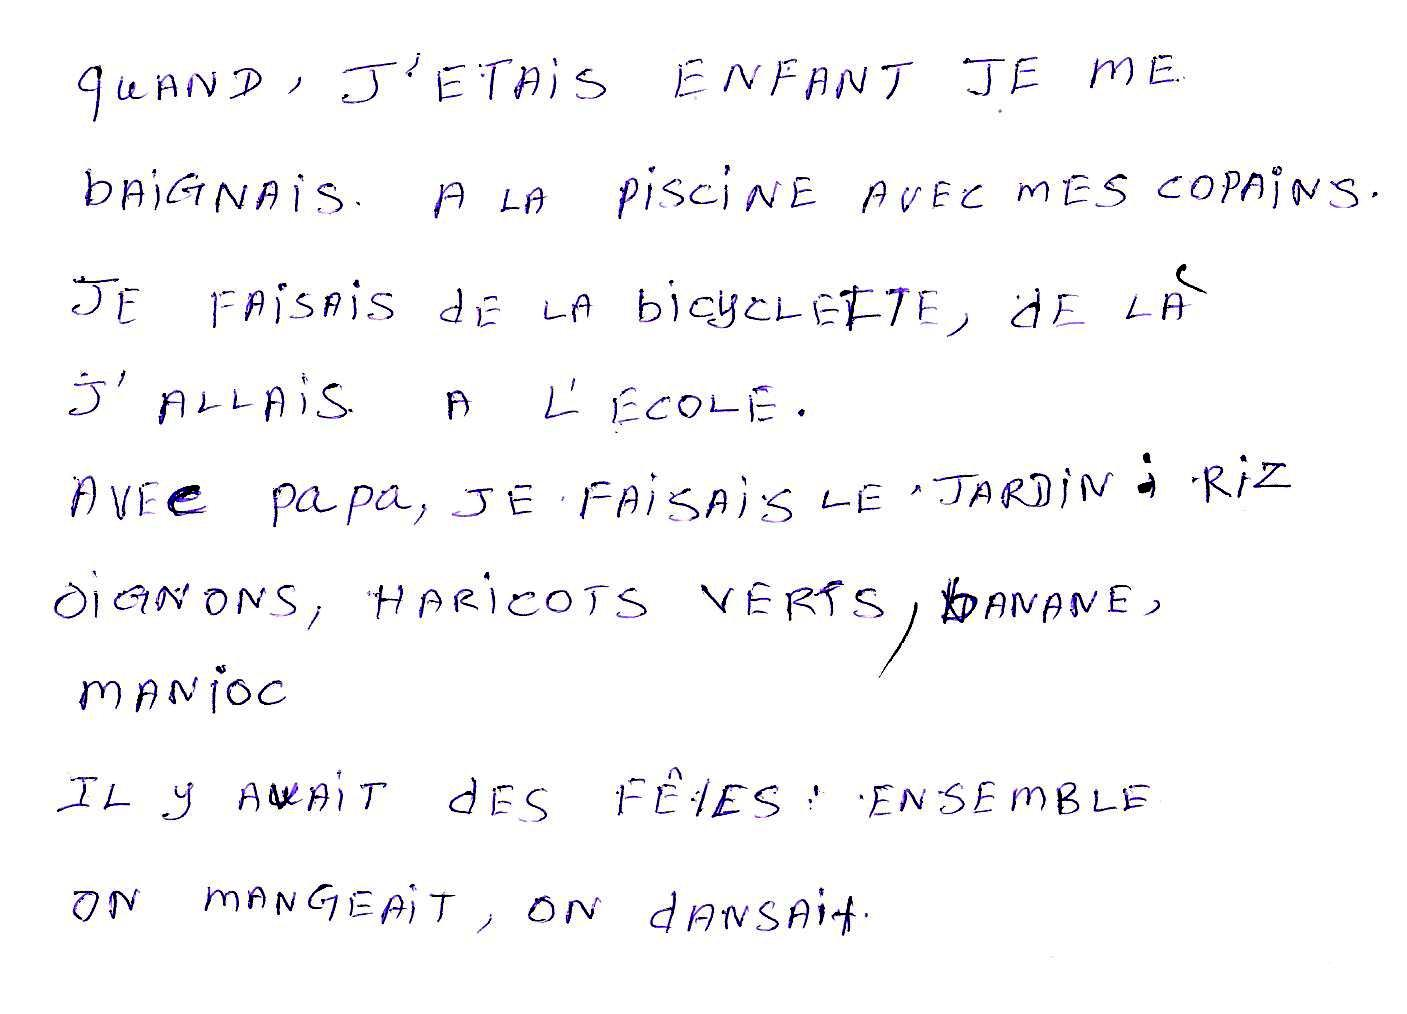 quAND, J'ETAiS ENFANT JE ME
bAiGNAiS. A LA PiSCiNE AVEC MES COPAiNS.
JE FAiSAiS dE LA bicyCLETTE, dE LÀ
J'ALLAiS A L'ECOLE.
AVEc papa, JE FAiSAiS LE JARDiN : RiZ
OiGNONS, HARiCOTS VERTS, bANANE,
MANiOC
IL y AVAiT dES FÊTES : ENSEMBLE
ON MANGEAiT, ON dANSAit.